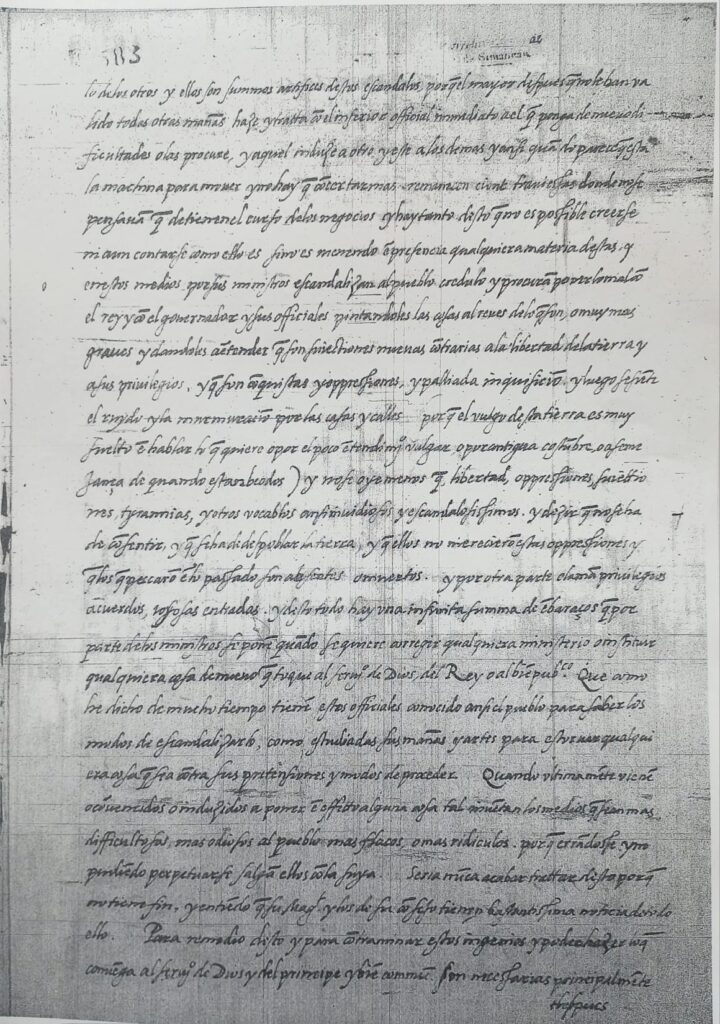 583
lo de los otros y ellos son summos artifices destos escandalos, porq̃ el mayor despues q̃ no le han va
lido todas otras mañas haze y tratta cõ el inferior official inmediato a el q̃ ponga de nuevo di
ficultades o las procure, y aquel induze a otro y este a los demas y ansi quãdo parece q̃ esta
la machina para mover y no hay q̃ cõcertar mas remanecen cient traviessas donde no se
pensavã q̃ detienen el curso de los negocios y hay tanto desto q̃ no es possible creerse
ni aun contarse como ello es sino es en presencia qualquiera materia destas. y
en estos medios por sus ministros escandalizan al pueblo credulo y procurã ponerlo mal cõ
el rey y cõ el governador y sus officiales pintandoles las cosas al reves de lo q̃ son, o muy mas
graves y dandoles a entender q̃ son subiectiones nuevas cõtrarias a la libertad de la tierra y
a sus privilegios. y q̃ son cõquistas y oppressiones, y palliada inquisiciõ. y luego se siẽte
el ruydo y la murmuraciõ por las casas y calles porq̃ el vulgo desta tierra es muy
suelto ẽ hablar lo q̃ quiere o por el poco ẽtendimyº vulgar, o por antigua costũbre, o a seme
jança de quando estan beodos) y no se oye menos q̃ libertad, oppressiones, subiectio
nes, tyrannias, y otros vocablos ansi invidiosos y escandalosissimos. y dezir q̃ no se ha
de cõsentir, y q̃ se ha de despoblar la tierra, y q̃ ellos no merecierõ estas oppressiones y
q̃ los q̃ pescarõ ẽ lo passado son absentes o muertos. y por otra parte claman privilegios
acuerdos, joyosas entradas. y desto todo hay una infinita summa de ẽbaraços q̃ por
parte de los ministros se ponẽ quãdo se quiere corregir qualquiera ministerio o instituir
qualquiera cosa de nuevo q̃ toque al servyº de Dios, del Rey o al biẽ pubco. Que como
he dicho de mucho tiempo tienẽ estos officiales conocido ansi el pueblo para saber los
modos de escandalizarlo, como estudiadas sus mañas y artes para estorvar qualqui
era cosa q̃ sea cõtra sus pretensiones y modos de proceder. Quando ultimamẽte vienẽ
o cõvencidos o induzidos a poner ẽ effecto alguna cosa tal inventan los medios q̃ sean mas
difficultosos, mas odiosos al pueblo mas flacos, o mas ridiculos. porq̃ errãdose y no
pudiẽdo perpetuarse salgan ellos cõ la suya. Seria nũca acabar trattar desto porq̃
no tiene fin, y entiẽdo q̃ su Magd y los de su cõsejo tienen bastantissima noticia de todo
ello. Para remedio desto y para cõtraminar estos ingenios y poder hazer lo q̃
convẽga al servyº de Dios y del principe y biẽ commũ son necessarias principalmẽte